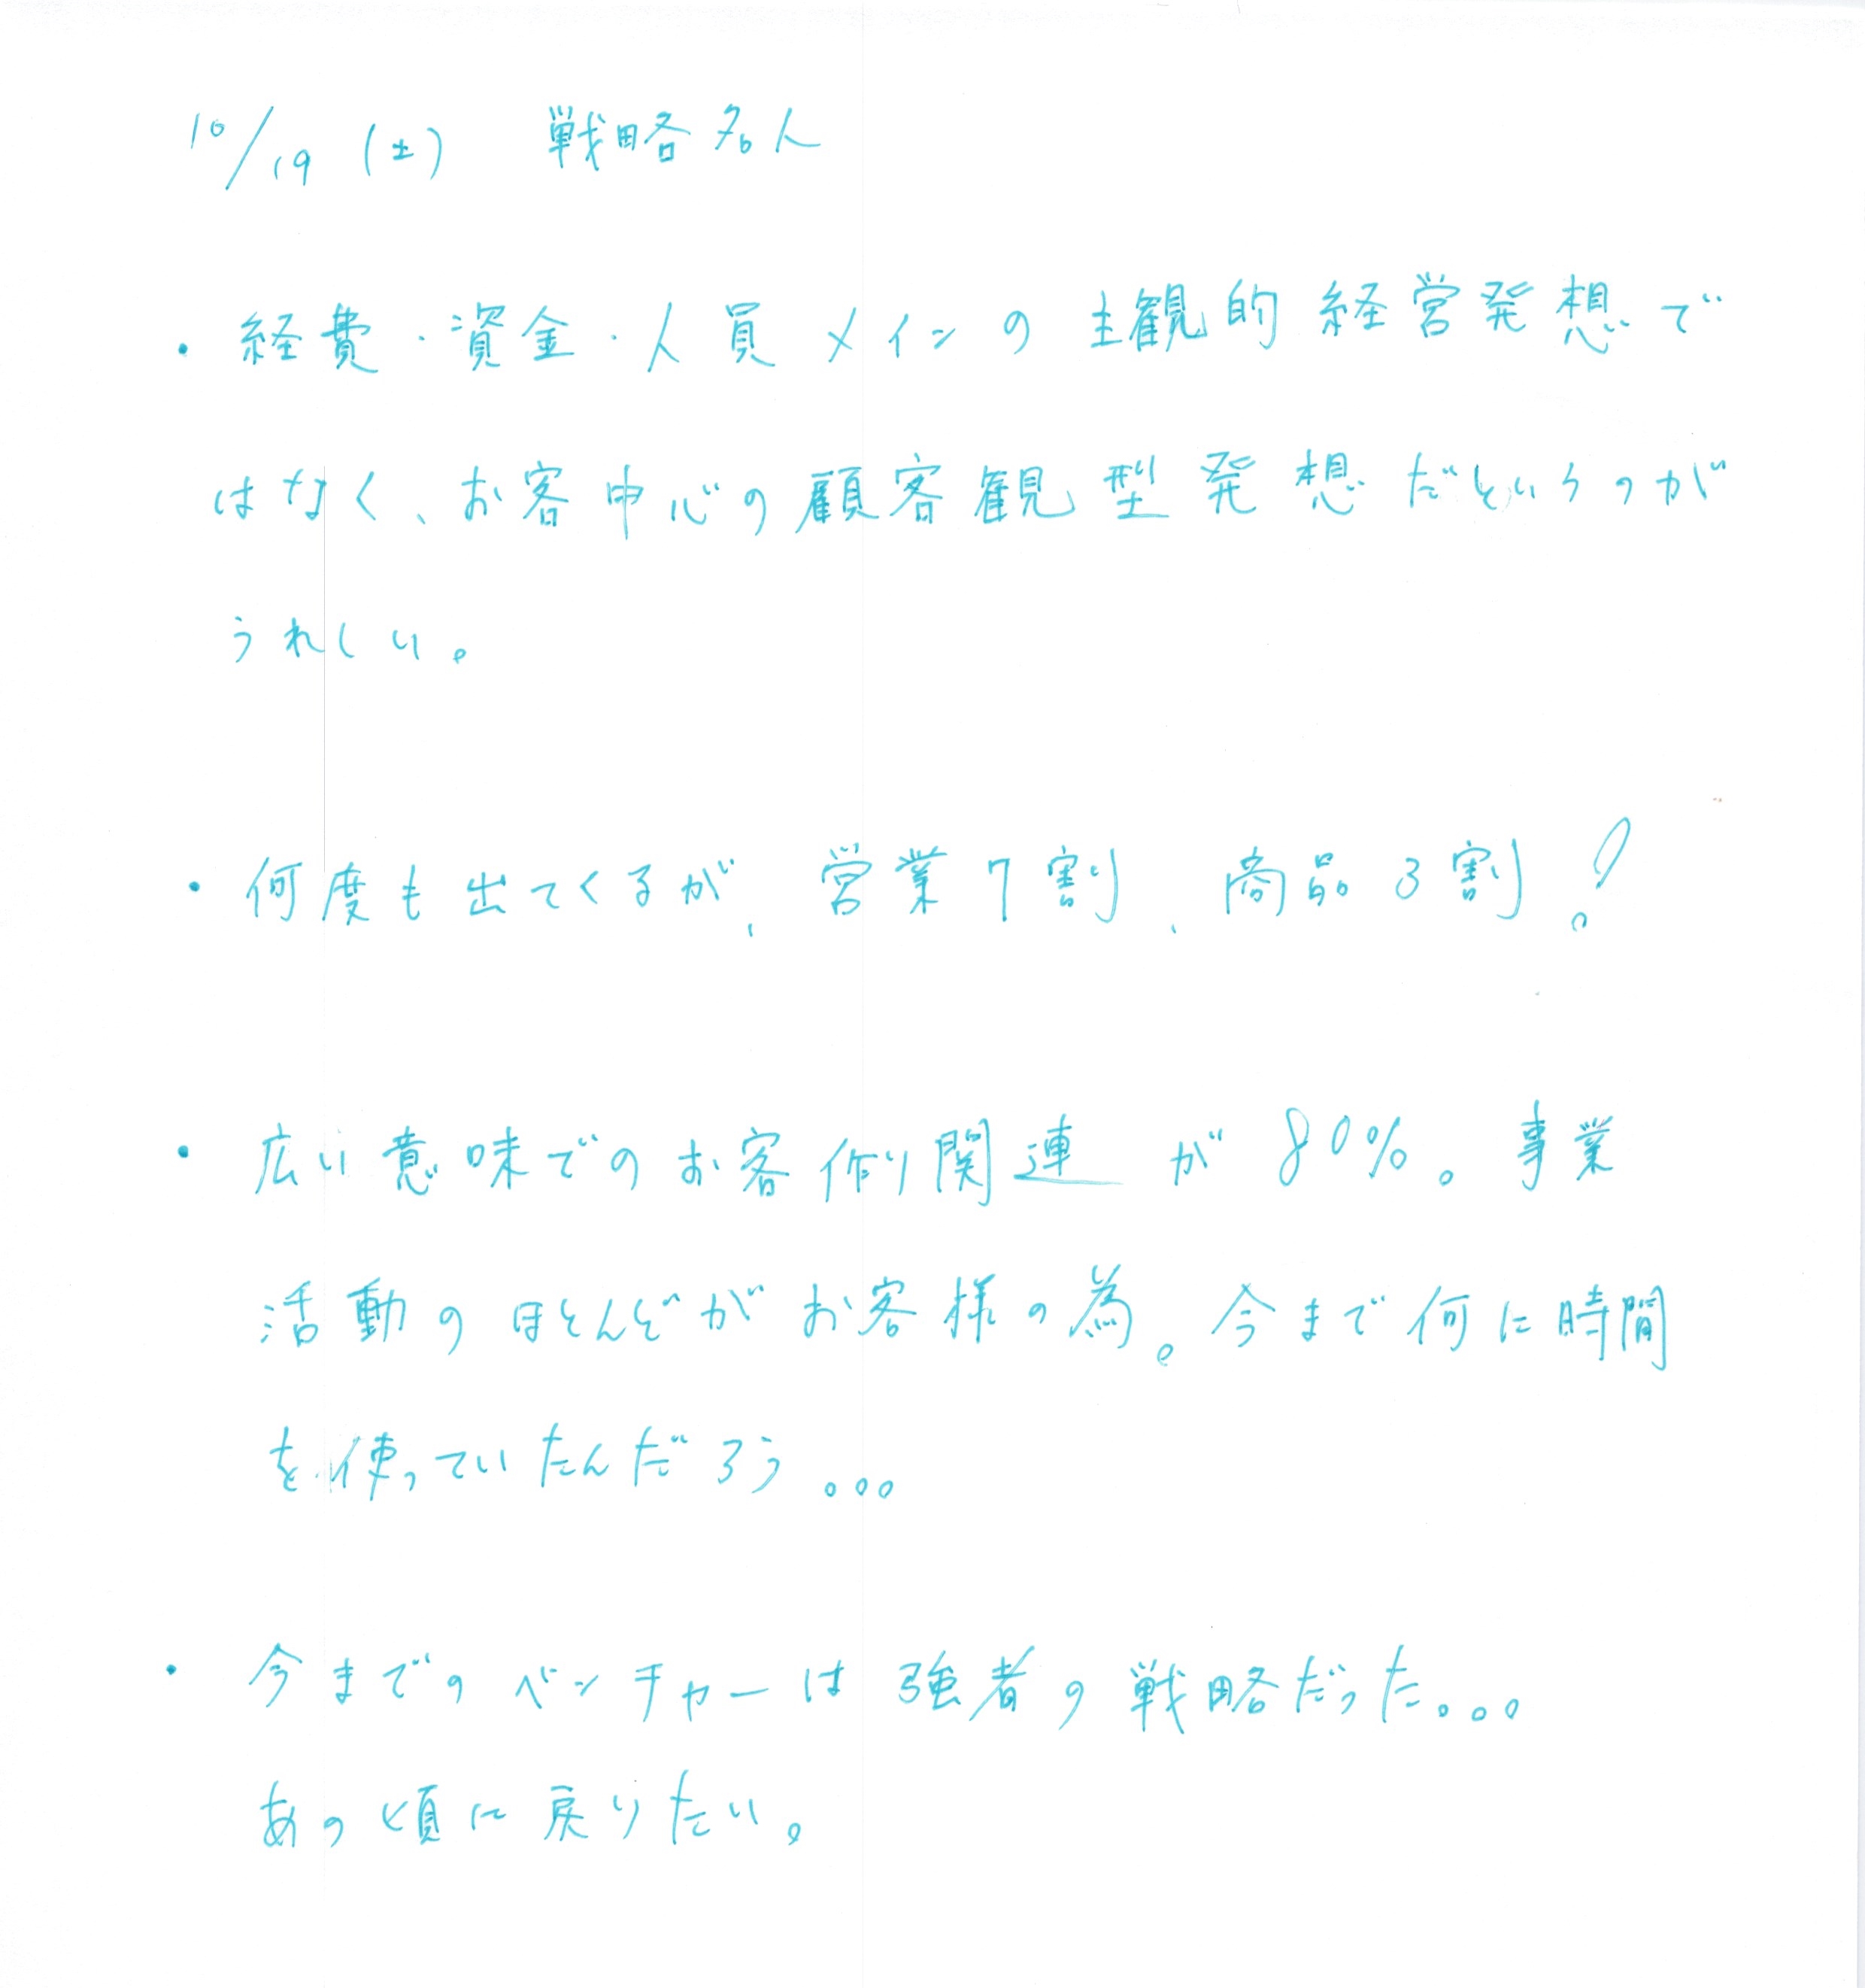 10/19(土) 戦略名人
・経費・資金・人員メインの主観的経営発想で
はなく、お客中心の顧客観型発想だというのが
うれしい。
・何度も出てくるが、営業7割、商品3割!
・広い意味でのお客作り関連が80%。事業
活動のほとんどがお客様の為。今まで何に時間
を使っていたんだろう...
・今までのベンチャーは強者の戦略だった...
あの頃に戻りたい。